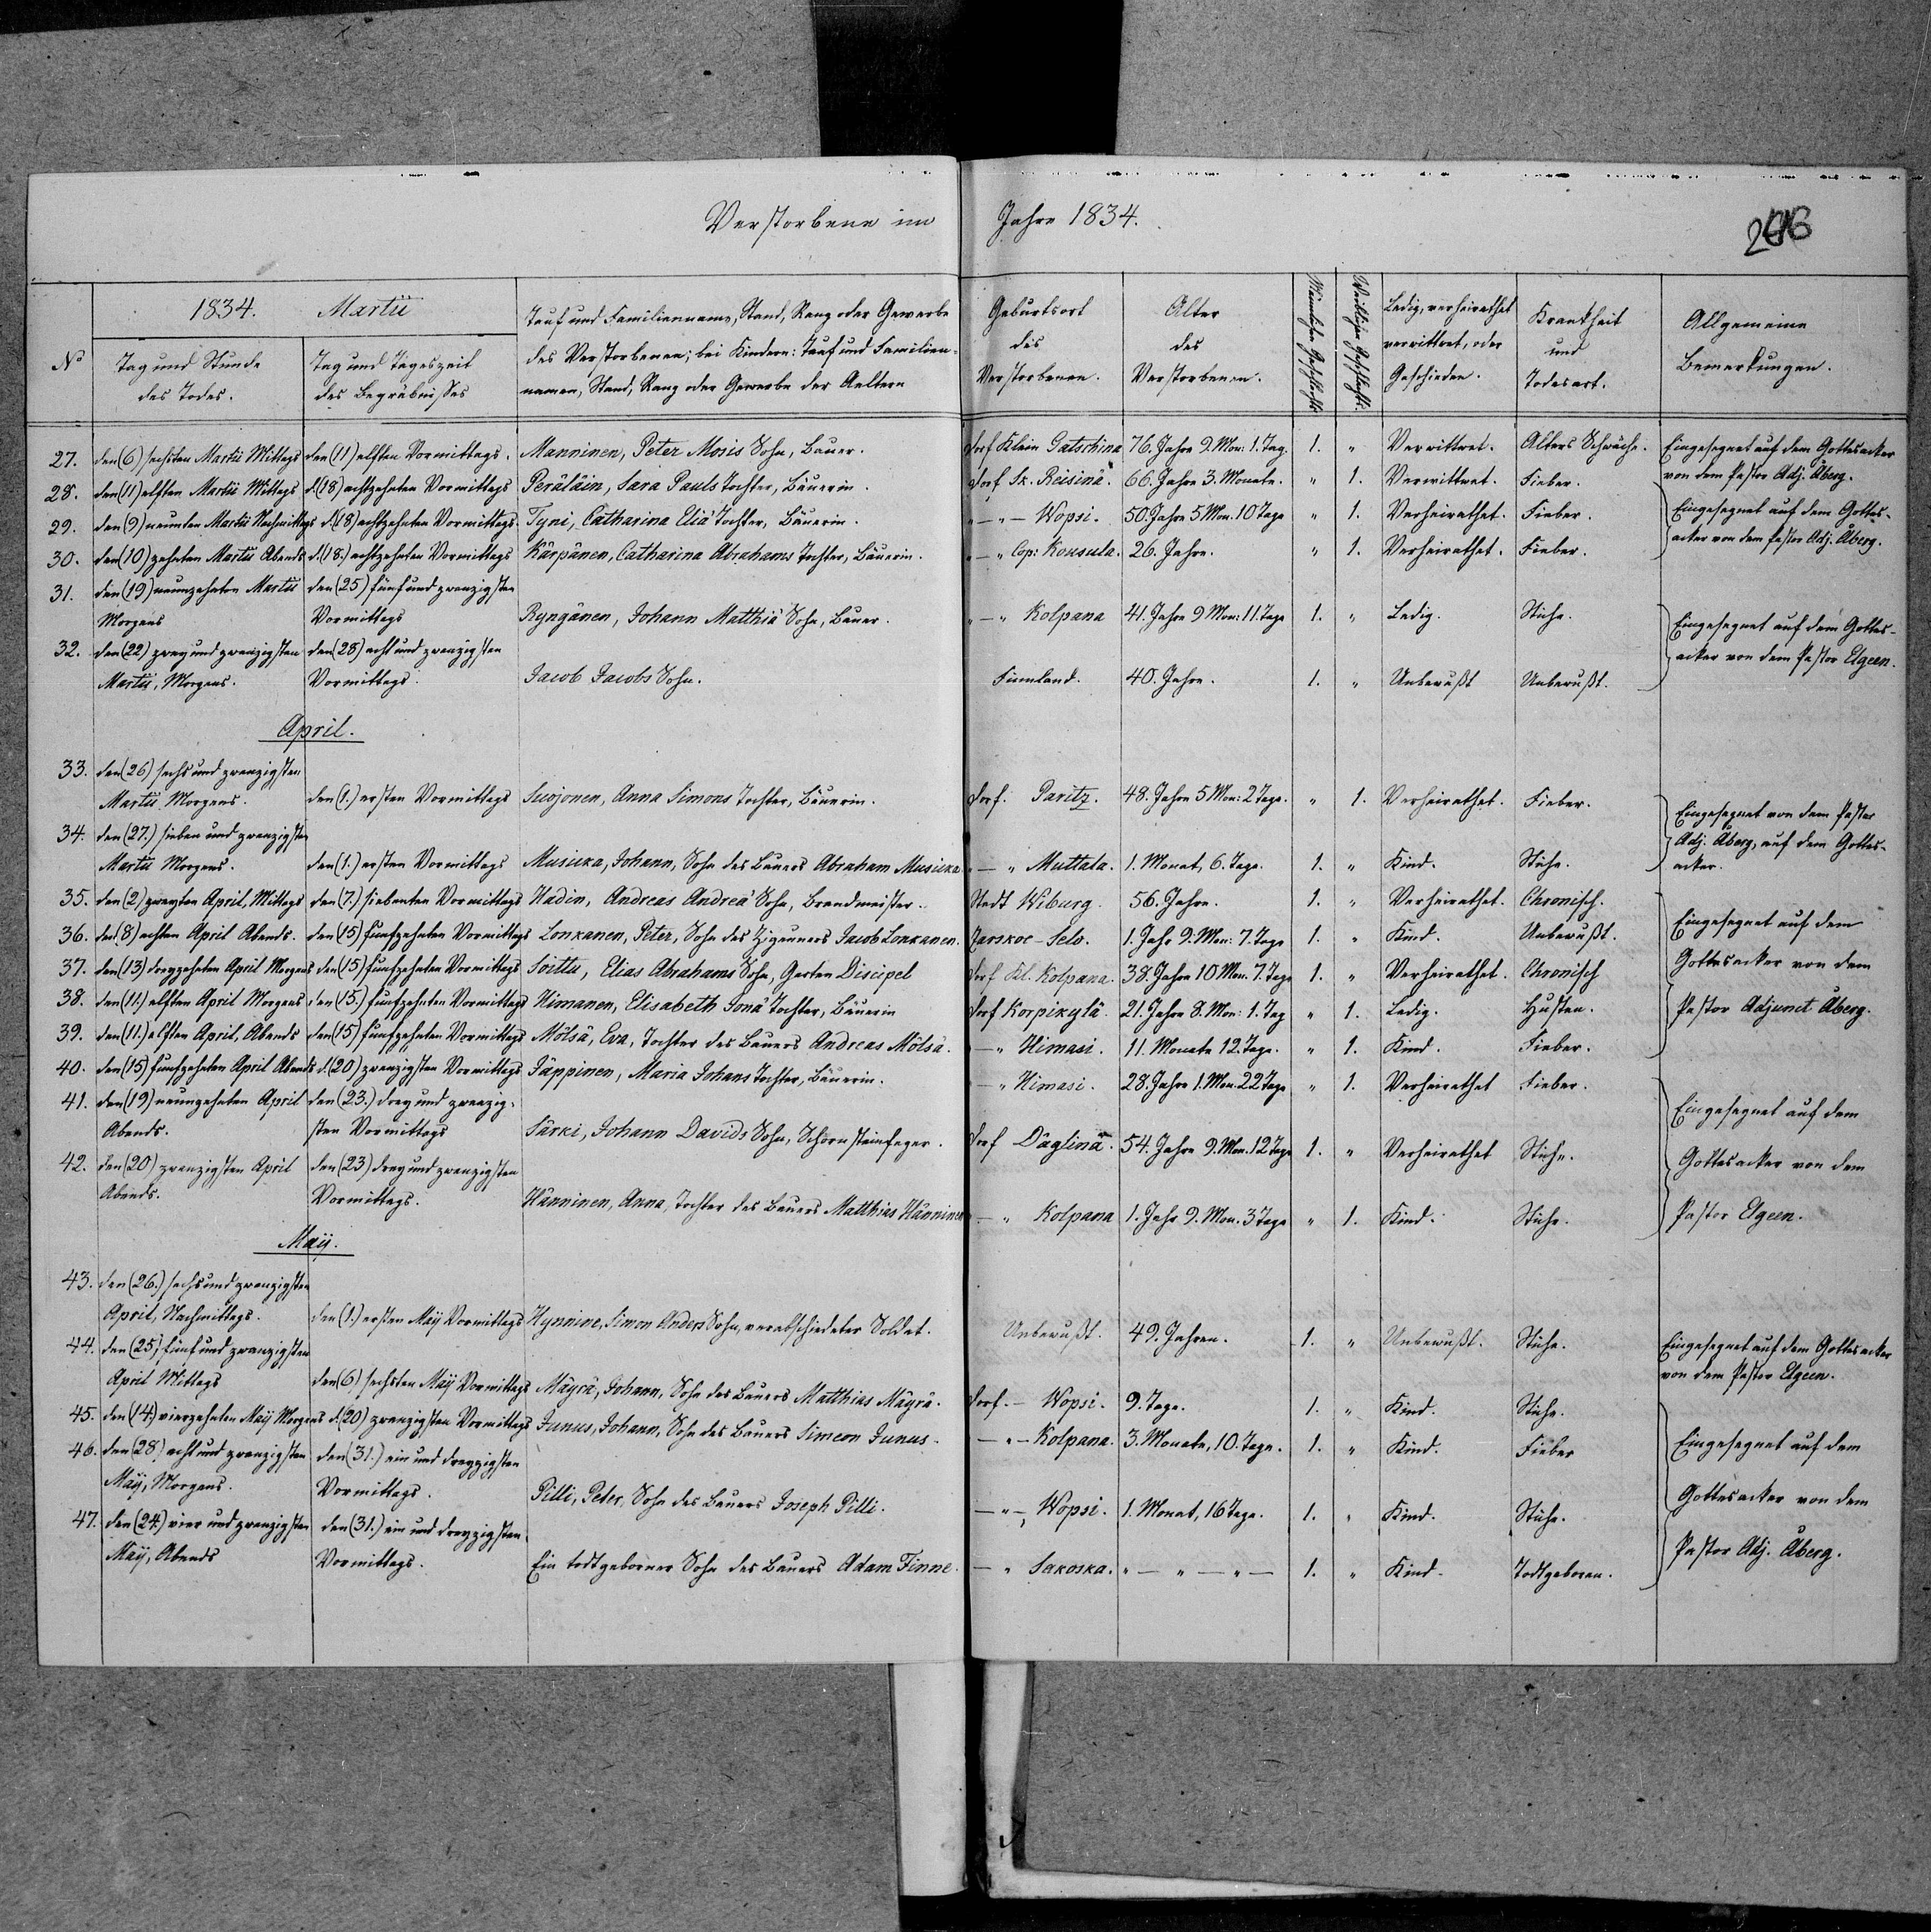 Verstorbene im Jahre 1834.
1834. Martii
No
Tag und Stunde des Todes.
Tag und Tageszeit des Begräbnisses
Tauf und Familienname, Stand, Rang oder Gewerbe
des Verstorbenen; bei Kindern: Tauf und Familien-
namen, Stand, Rang oder Gewerbe der Aeltern
Geburtsort des Verstorbenen.
Alter des Verstorbenen.
Männlichen Geschlechts
Weiblichen Geschlechts.
Ledig, verheirathet verwittwet, oder Geschieden.
Krankheit und Todesart.
Allgemeine Bemerkungen.
27. den (6) sechsten Martii Mittags den (11) elften Vormittags. Manninen, Peter Mosis Sohn, Bauer. Dorf Klein Gatschina 76. Jahre 9. Mon: 1. Tag. 1. " Verwittwet. Alters Schwäche. Eingesegnet auf dem Gottesacker
28. den (11) elften Martii Mittags d. (18) achtzehnten Vormittags Peräläin, Sara Pauls Tochter, Bäuerin. Dorf Sk. Reisinä. 66. Jahre 3. Monate. " 1. Verwittwet. Fieber. von dem Pastor Adj. Åberg.
29. den (9) neunten Martii Nachmittags d. (18) achtzehnten Vormittags. Tyni, Catharina Eliä Tochter, Bäuerin. " — " — Wopsi. 50. Jahre 5. Mon. 10 Tage " 1. Verheirathet. Fieber. Eingesegnet auf dem Gottes-
30. den (10) zehnten Martii Abends d. (18.) achtzehnten Vormittags Kärpänen, Catharina Abrahams Tochter, Bäuerin. " — " Cop: Kousula. 26. Jahre. " 1. Verheirathet. Fieber. acker von dem Pastor Adj. Åberg.
31. den (19) neunzehnten Martii den (25) fünf und zwanzigsten
Morgens Vormittags Ryngänen, Johann Matthiä Sohn, Bauer. " — " Kolpana 41. Jahre 9 Mon: 11. Tage 1. " Ledig. Stiche. Eingesegnet auf dem Gottes-
32. den (22) zwey und zwanzigsten den (28) acht und zwanzigsten acker von dem Pastor Elgeen.
Martii, Morgens. Vormittags. Jacob Jacobs Sohn. Finnland. 40. Jahre. 1. " Unbewußt Unbewußt.
April.
33. den (26) sechs und zwanzigsten
Martii Morgens. den (1.) ersten Vormittags Suojonen, Anna Simons Tochter, Bäuerin. Dorf. Paritz. 48. Jahre 5 Mon: 2 Tage. " 1. Verheirathet. Fieber. Eingesegnet von dem Pastor
34. den (27.) sieben und zwanzigsten Adj. Åberg, auf dem Gottes-
Martii Morgens. den (1.) ersten Vormittags Musikka, Johann, Sohn des Bauers Abraham Musikka. " — " Muttala. 1. Monat, 6. Tage. 1. " Kind. Stiche. acker.
35. den (2) zweyten April, Mittags den (7.) siebenten Vormittags Hadin, Andreas Andreä Sohn, Brandmeister. Stadt Wiburg. 56. Jahre. 1. " Verheirathet. Chronisch.
36. den (8) achten April Abends. den (15) funfzehnten Vormittags Lonkanen, Peter, Sohn des Zigeuners Jacob Lonkanen. Zarskoe-Selo. 1. Jahr 9. Mon: 7. Tage 1. " Kind. Unbewußt. Eingesegnet auf dem
37. den (13) dreyzehnten April Morgens den (15) funfzehnten Vormittags Soittu, Elias Abrahams Sohn, Garten Discipel Dorf Kl. Kolpana. 38. Jahre 10 Mon. 7. Tage 1. " Verheirathet. Chronisch Gottesacker von dem
38. den (11.) elften April Morgens den (15.) funfzehnten Vormittags Himanen, Elisabeth Jonä Tochter, Bäuerin Dorf Korpikylä. 21. Jahre 8. Mon: 1. Tag " 1. Ledig. Husten. Pastor Adjunct Åberg.
39. den (11.) elften April, Abends den (15) funfzehnten Vormittags Mölsä, Eva, Tochter des Bauers Andreas Mölsä. — " Himasi. 11. Monate 12. Tage. " 1. Kind. Fieber.
40. den (15) funfzehnten April Abends d. (20) zwanzigsten Vormittags Jäppinen, Maria Johans Tochter, Bäuerin. — " Himasi. 28. Jahre 1. Mon. 22 Tage " 1. Verheirathet Fieber.
41. den (19) neunzehnten April den (23.) drey und zwanzig- Eingesegnet auf dem
Abends. sten Vormittags Särki, Johann Davids Sohn, Schornsteinfeger. Dorf Däglinä. 54. Jahre 9. Mon. 12 Tage 1. " Verheirathet Stiche.
42. den (20) zwanzigsten April den (23) drey und zwanzigsten Gottesacker von dem
Abends. Vormittags. Hänninen, Anna, Tochter des Bauers Matthias Hänninen — " Kolpana 1. Jahr 9. Mon. 3 Tage " 1. Kind. Stiche. Pastor Elgeen.
Maÿ.
43. den (26.) sechs und zwanzigsten
April, Nachmittags. den (1.) ersten Maÿ Vormittags Hynnine, Simon Anders Sohn, verabschiedeter Soldat. Unbewußt. 49. Jahren. 1. " Unbewußt. Stiche. Eingesegnet auf dem Gottesacker
44. den (25) fünf und zwanzigsten von dem Pastor Elgeen.
April Mittags den (6) sechsten Maÿ Vormittags Mäyrä, Johann, Sohn des Bauers Matthias Mäyrä. Dorf. — Wopsi. 9. Tage. 1. " Kind. Stiche.
45. den (14) vierzehnten Maÿ Morgens d. (20) zwanzigsten Vormittags Junus, Johann, Sohn des Bauers Simeon Junus. — " — Kolpana. 3. Monate, 10. Tage. 1. " Kind. Fieber Eingesegnet auf dem
46. den (28) acht und zwanzigsten den (31.) ein und dreyzigsten
Maÿ, Morgens. Vormittags. Pilli, Peter, Sohn des Bauers Joseph Pilli. — " — Wopsi. 1. Monat, 16 Tage. 1. " Kind. Stiche. Gottesacker von dem
47. den (24.) vier und zwanzigsten den (31.) ein und dreyzigsten
Maÿ, Abends Vormittags. Ein todtgeborner Sohn des Bauers Adam Finne. — " Sakoska. " — " — " — 1. " Kind. Todtgeboren. Pastor Adj. Åberg.